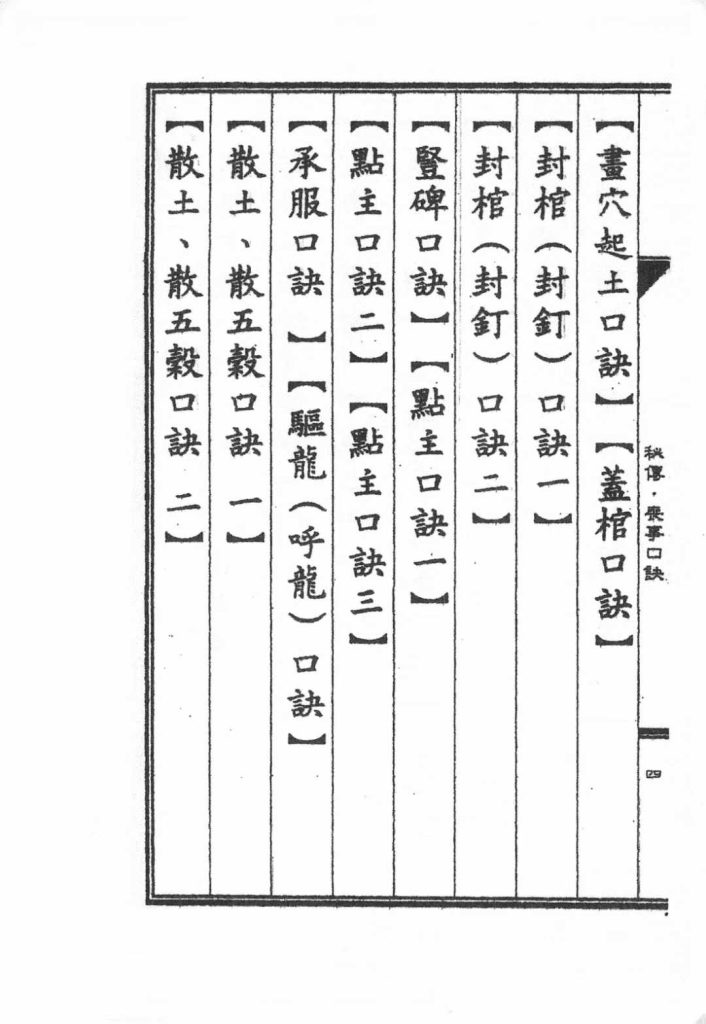 秘傳·喪事口訣
四
【畫穴起土口訣】【蓋棺口訣】
【封棺（封釘）口訣一】
【封棺（封釘）口訣二】
【豎碑口訣】【點主口訣一】
【點主口訣二】【點主口訣三】
【承服口訣 】【驅龍（呼龍）口訣】
【散土、散五穀口訣 一】
【散土、散五穀口訣 二】